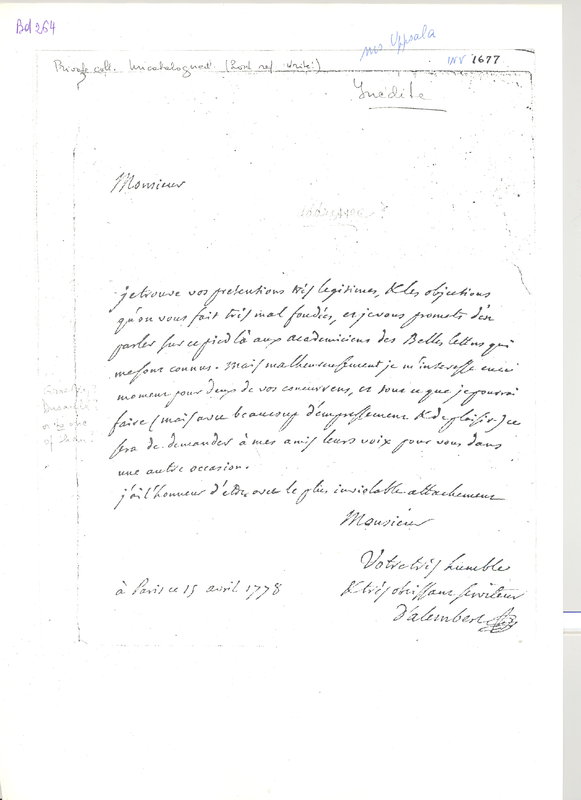 Bd 264
mss Uppsala
INV 1677
Private coll. Uncatalogued (Lont ref. write!)
Inédite
Monsieur
je trouve vos prétentions très legitimes, & les objections
qu'on vous fait très mal fondées, et je vous promets d'en
parler sur ce pied là aux academiciens des Belles lettres qui
me sont connus. mais malheureusement je m'interesse en ce
moment pour deux de vos concurrens, et tout ce que je pourrai
faire (mais avec beaucoup d'empressement & de plaisir) ce
sera de demander à mes amis leurs voix pour vous dans
une autre occasion.
j'ai l'honneur d'etre avec le plus inviolable attachement
Monsieur
Votre très humble
& très obissant serviteur
à Paris ce 15 avril 1778
D'alembert